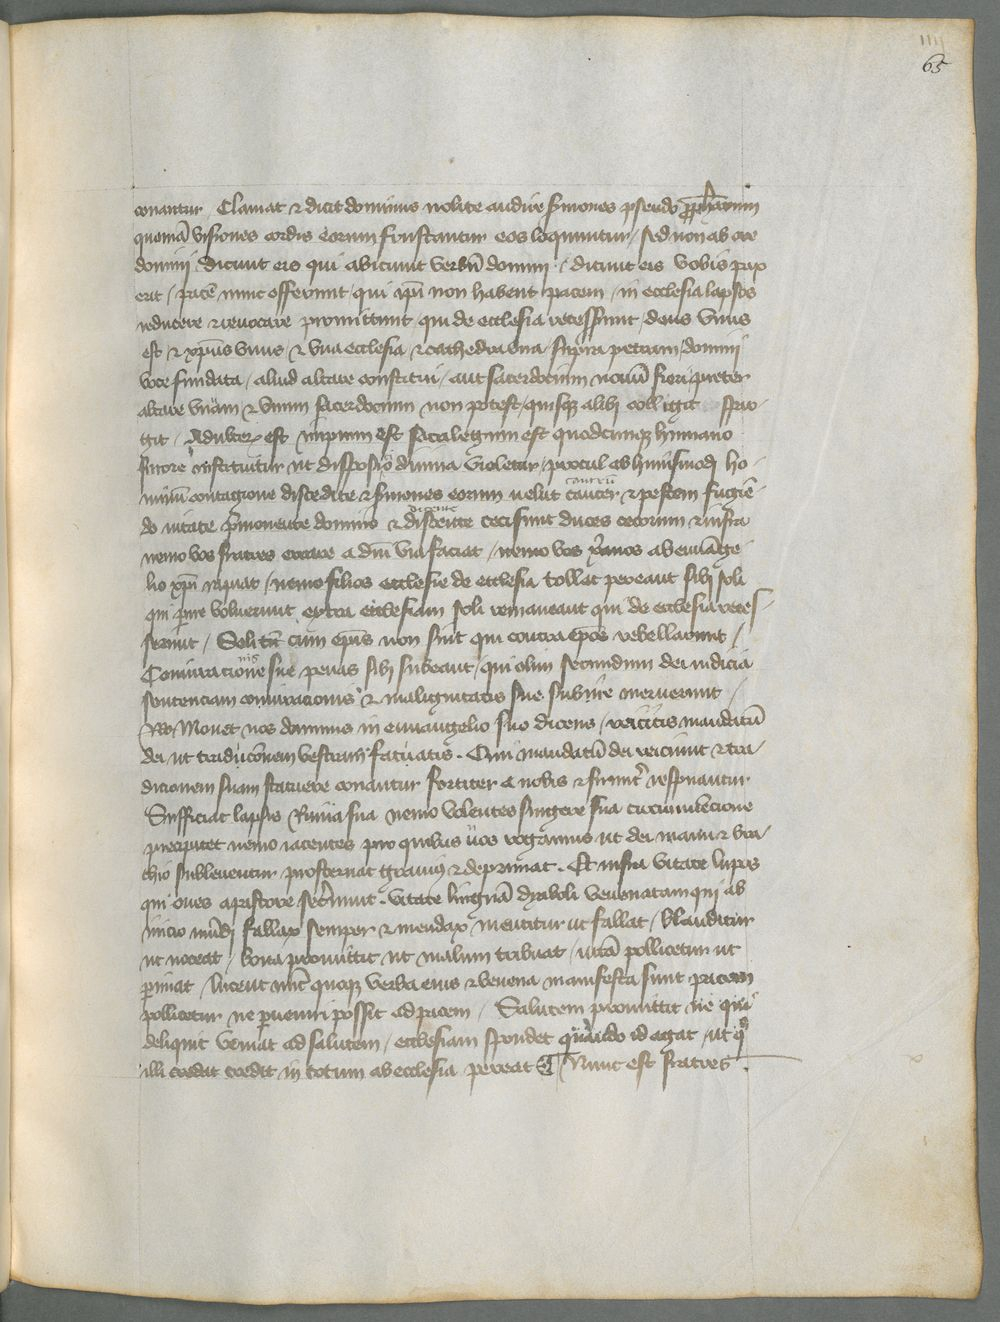 IIII
65
conantur / Clamat & dicit dominus nolite audire sermones pseudo prophetarum
quoniā visiones cordis eorum frustrantur eos loquuntur / sed non ab ore
domini dicunt eis qui abiciunt verbū domini / dicunt eis vobis pax
erit / pacē nunc offerunt qui ipī non habent pacem / in ecclesia lapsos
reducere & revocare promittunt qui de ecclesia recesserunt / deus vnus
est & xpūs vnus & vna ecclesia & cathedra vna / supra petram domini
voce fundata / aliud altare constitui / aut sacerdocium nouū fieri preter
altare vnum & vnum sacerdocium non potest / quisq3 alibi collegit spar
git / Adulter est impium est sacrilegium est quodcumq3 humano
furore instituitur ut dispositio diuina violetur / procul ab huiusmodi ho-
minū contagione discedite & sermones eorum uelut cancer & pestem fugiē-
cancrū
do uitate p̄monente domino & discente ceci sunt duces cecorum & infra
dicente
nemo vos fratres errare a dn̄i via faciat / nemo vos xp̄ianos ab euāge-
lio xpī rapiat / nemo filios ecclesie de ecclesia tollat pereant sibi soli
qui perire voluerunt extra ecclesiam soli remaneant qui de ecclesia reces-
serunt / Soli tn̄ cum ep̄is non sint qui contra ep̄os rebellarunt /
Coniuracione sue penas sibi subeant / qui olim secundum dei iudicia
nis
sentenciam coniuracionis & malignitatis sue subire meruerunt /
Monet nos dominus in euangelio suo dicens / reicitis mandatū
dei ut tradicōnem vestram statuatis . Qui mandatū dei reiciunt & tra-
dicionem suam statuere conantur fortiter a nobis & firmiter respuantur
Sufficiat lapsis Ruina sua nemo volentes surgere sua circumuencione
precipitet nemo iacentes pro quibus nos rogamus ut dei manu & bra-
chio subleuentur prosternat grauius & deprimat . Et infra vitate lupos
qui oues a pastore secernunt . vitate linguā dyaboli venenatam qui ab
inicio mūdi fallax semper & mendax mentitur ut fallat / blanditur
ut noceat / bona promittit ut malum tribuat / uitā pollicetur ut
perimat / lucent nunc quoq3 verba eius & venena manifesta sunt pacem
pollicetur ne peruenri possit ad pacem / Salutem promittit ne qui
deliquit veniat ad salutem / ecclesiam spondet quando id agat / ut q
illi credat credit in totum ab ecclesia pereat ¶ Nunc est fratres